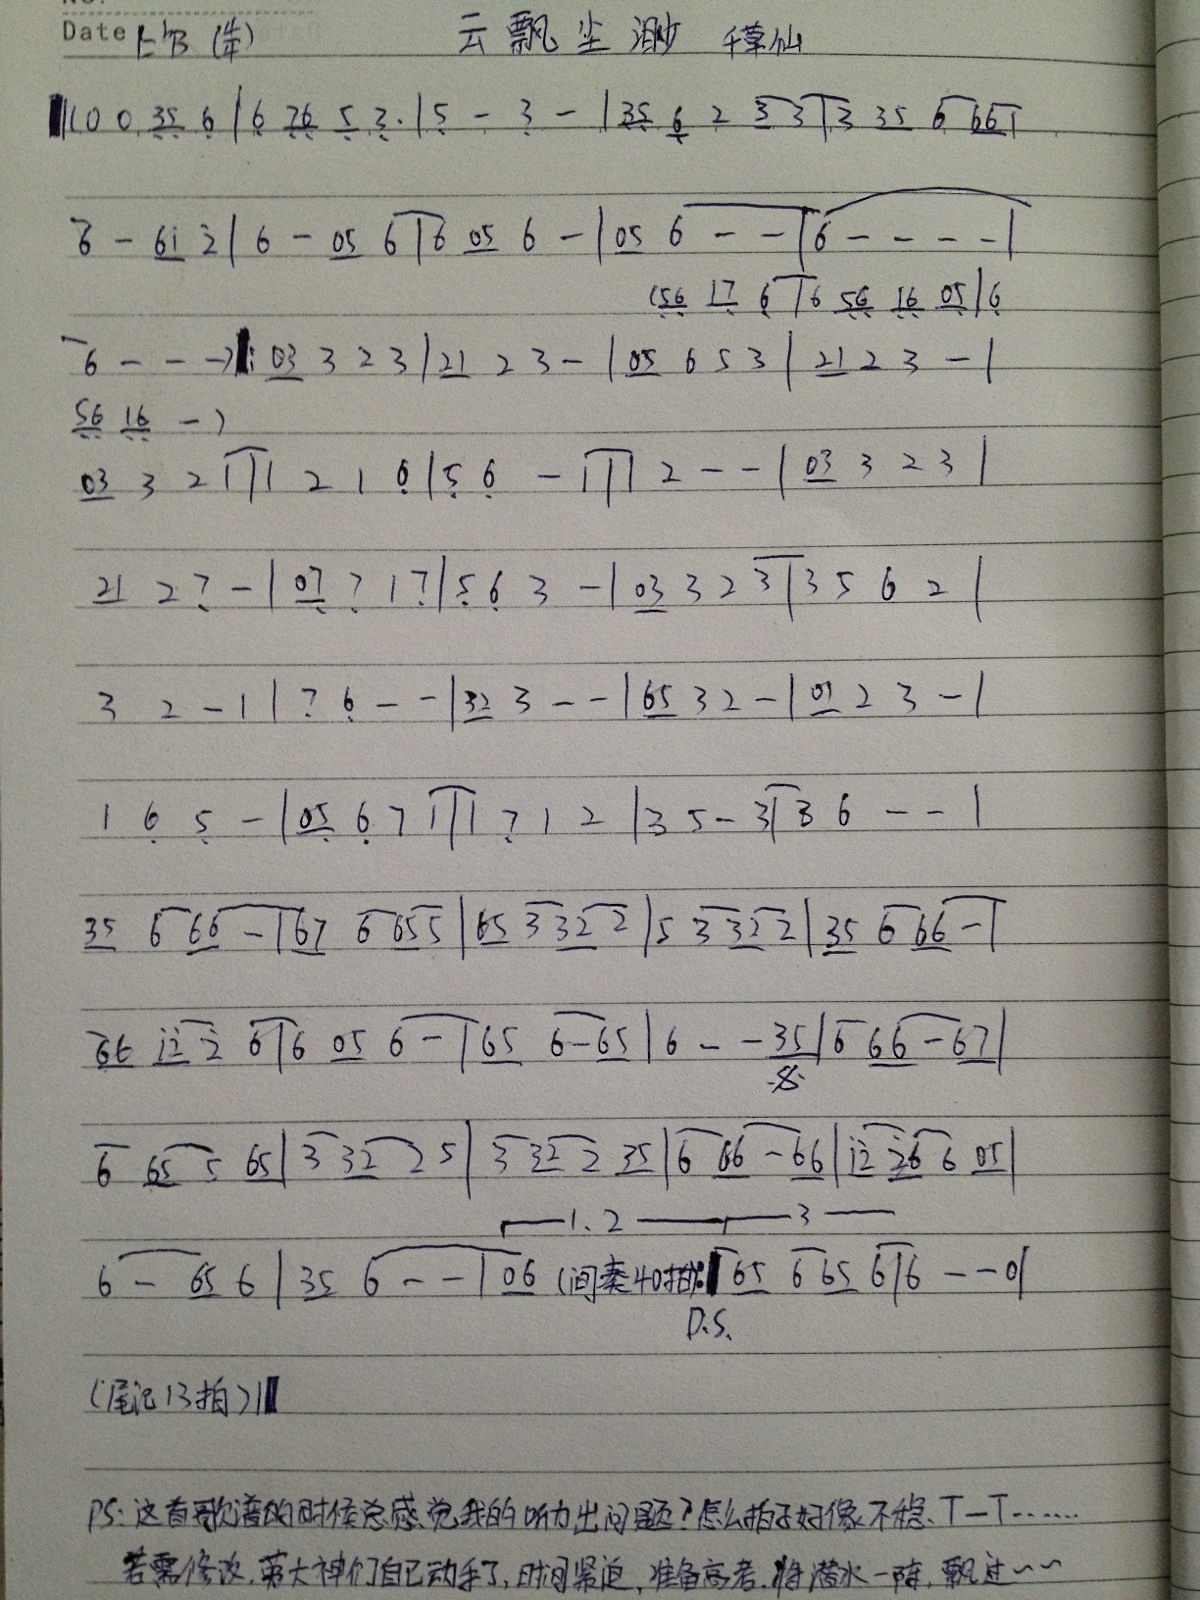 Date 1=♭B (4/4) 云飘尘渺 千草仙
‖(0 0 35 6 | 6 76 5 3. | 5 - 3 - | 35 6 2 3 3 | 3 35 6 66 |
6 - 6i 2 | 6 - 05 6 | 6 05 6 - | 05 6 - - | 6 - - - - |
(56 17 6 | 6 56 16 05 | 6
6 - - -) ‖: 03 3 2 3 | 21 2 3 - | 05 6 5 3 | 21 2 3 - |
56 16 -)
03 3 2 1 | 1 2 1 6 | 5 6 - 1 | 1 2 - - | 03 3 2 3 |
21 2 7 - | 07 7 1 7 | 5 6 3 - | 03 3 2 3 | 3 5 6 2 |
3 2 - 1 | 7 6 - - | 32 3 - - | 65 3 2 - | 01 2 3 - |
1 6 5 - | 05 6 7 1 | 1 7 1 2 | 3 5 - 3 | 3 6 - - |
35 6 66 - | 67 6 65 5 | 65 3 32 2 | 5 3 32 2 | 35 6 66 - |
66 i2 2 6 | 6 05 6 - | 65 6 - 65 | 6 - - 35 | 6 66 - 67 |
𝄋
6 65 5 65 | 3 32 2 5 | 3 32 2 35 | 6 66 - 66 | i2 26 6 05 |
1. 2 3
6 - 65 6 | 35 6 - - | 06 (间奏40拍) :‖ 65 6 65 6 | 6 - - 0 |
D.S.
(尾记13拍) ‖
PS: 这首歌谱的时候总感觉我的听力出问题?怎么拍子好像不稳. T—T......
若需修改, 第大神们自己动手了, 时间紧迫, 准备高考. 将潜水一阵, 飘过~~